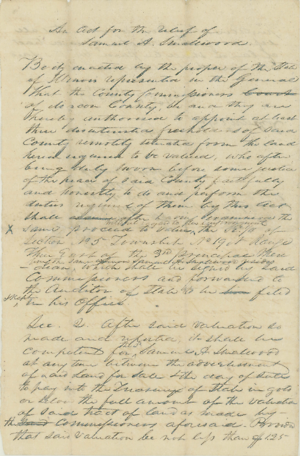 An Act for the relief of
Samuel A. Smallwood
Be it enacted by the people of the State
of Illinois represented in the General
That the County Commissioners Court
of County, be and they are
hereby authorised to appoint at least
three disinterested freeholders of said
County remotely situated from the land
herein required to be valued, who after
being duly sworn before some justice
of the peace of said County faithfully
and honestly to do and perform the
duties required of them by this act
shall after having examined the
X same, proceed to value the
Section No 5 Township No 19 of Range
of the 3rd Principal Meri-
-dian, which shall be signed by said
Commissioners and forwarded to
the Auditor of State to be filed
in his Office.
Sec 2. After said valuation so
made and it shall be
competent for Samuel A. Smallwood
at any time between the
of and the day of
to pay into the Treasury of State in gold
or silver the full amount of the valuation
of said tract of land as made by
the Commissioners aforesaid. Provided
that said valuation be not less than $1.25